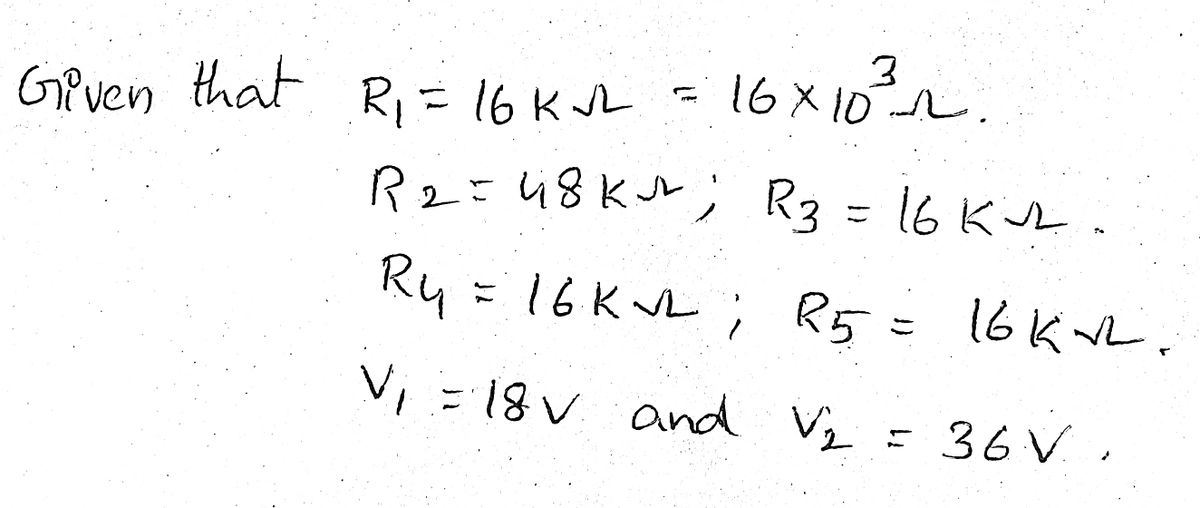 Given that R₁ = 16 KΩ = 16 × 10³ Ω.
R₂ = 48 KΩ ; R₃ = 16 KΩ.
R₄ = 16 KΩ ; R₅ = 16 KΩ.
V₁ = 18 V and V₂ = 36 V.